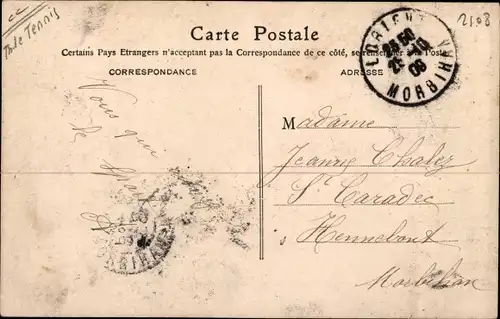 Table Tennis
2108
Carte Postale
Certains Pays Etrangers n'acceptant pas la Correspondance de ce côté, se renseigner à la Poste
CORRESPONDANCE
ADRESSE
LORIENT
25-10
06
MORBIHAN
Vous qui
Madame
Jeanne Chalez
St Caradec
Hennebont
Morbihan
MORBIHAN